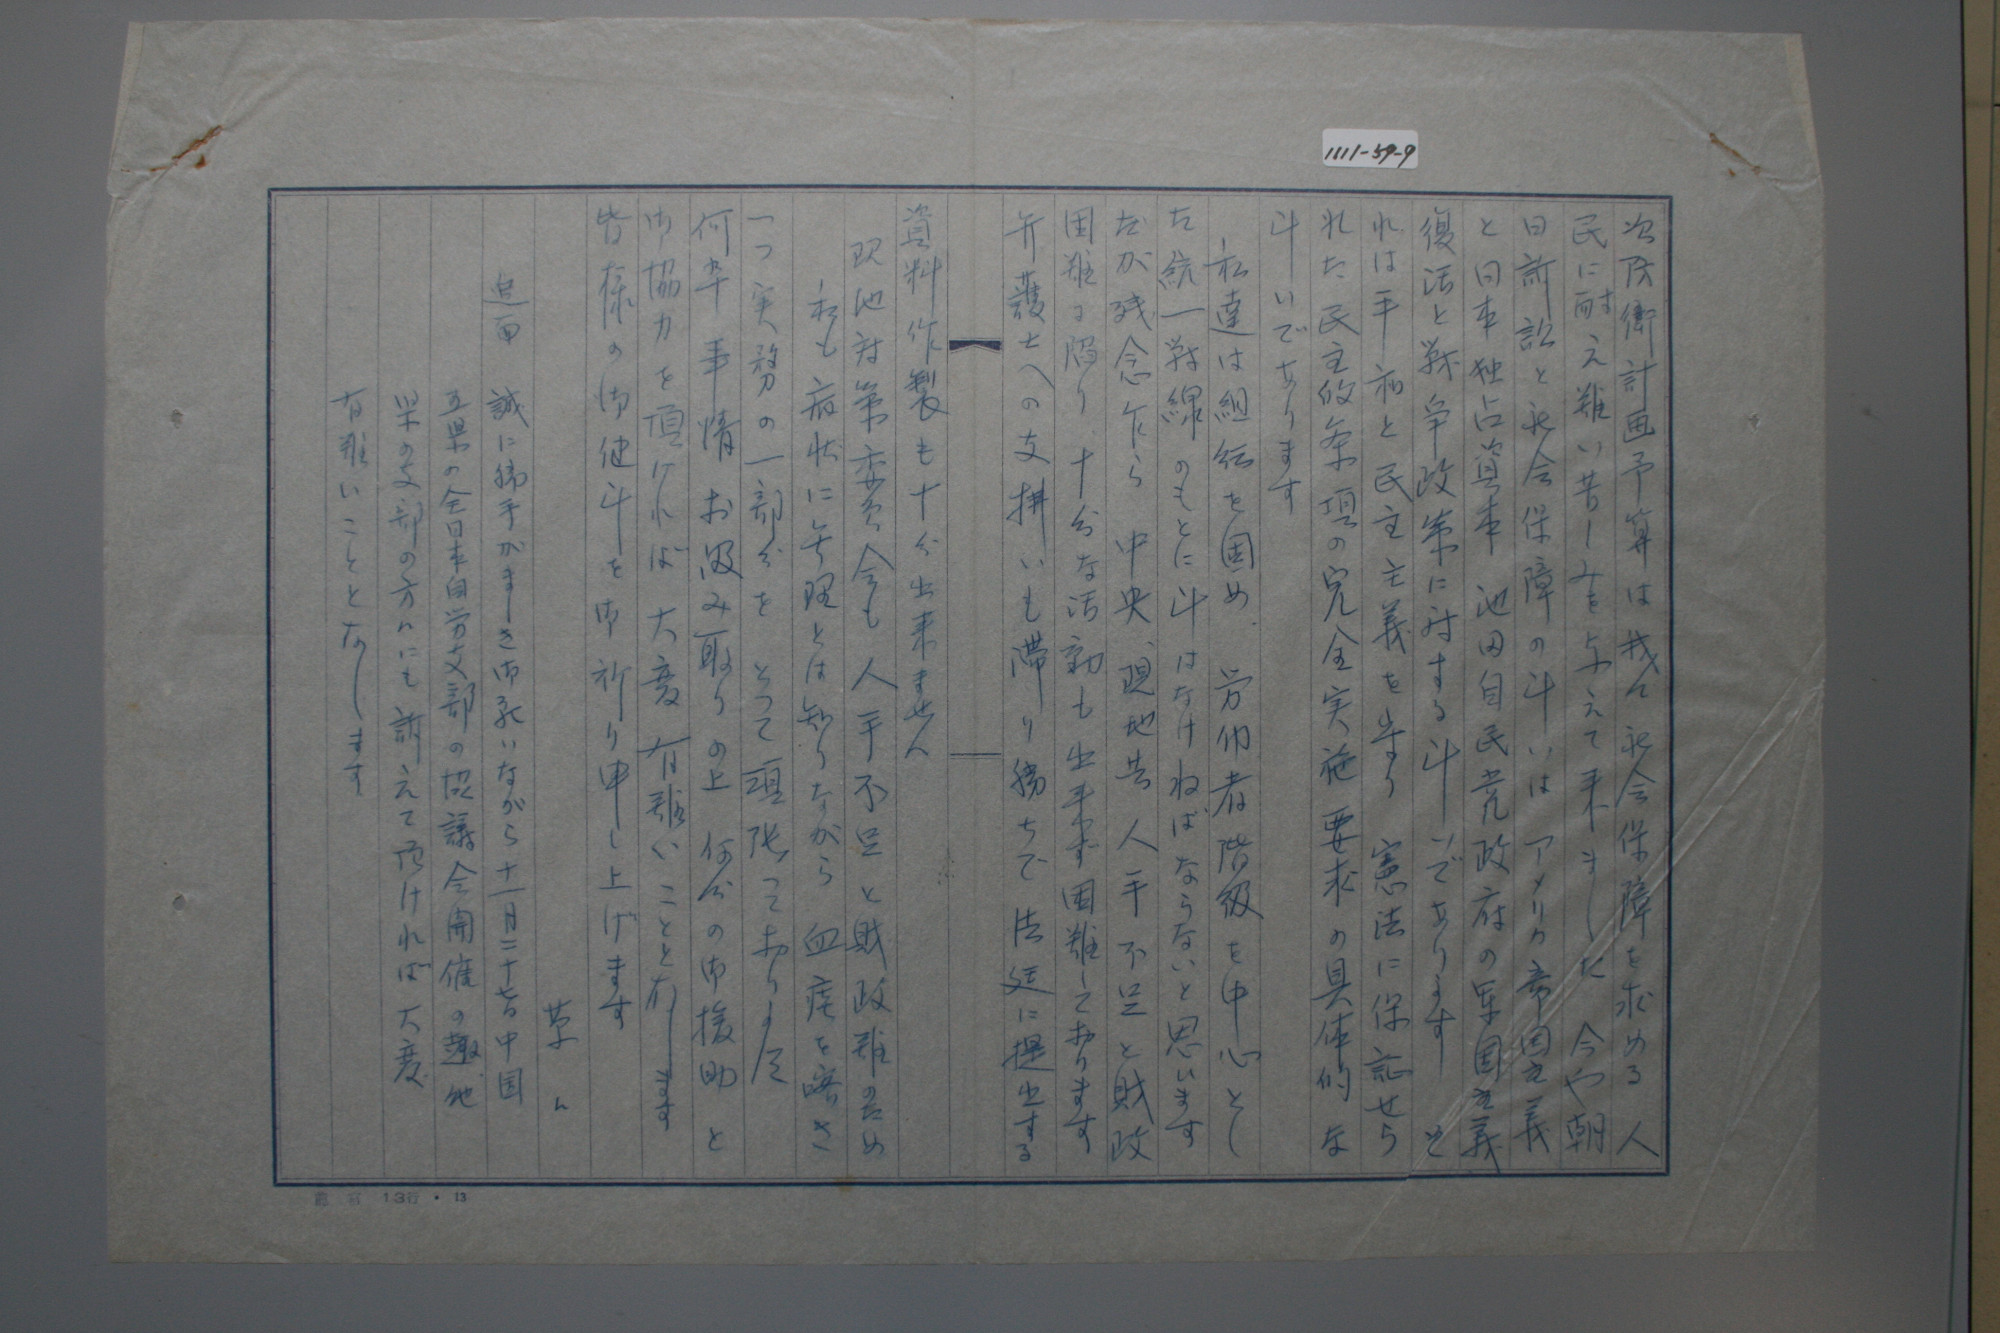 1111-59-9
次防衛計画予算は我々社会保障を求める人
民に耐え難い苦しみを与えて来ました 今や朝
日訴訟と社会保障の斗いは アメリカ帝国主義
と日本独占資本 池田自民党政府の軍国主義
復活と戦争政策に対する斗いであります そ
れは平和と民主主義を守り 憲法に保証せら
れた民主的条項の完全実施要求の具体的な
斗いであります
私達は組織を固め、労働者階級を中心とし
た統一戦線のもとに斗はなけねばならないと思います
だが残念乍ら 中央、現地共 人手不足と財政
困難に陥り、十分な活動も出来ず困難しております
弁護士への支拂いも滞り勝ちで法廷に提出する
資料作製も十分出来ません
現地対策委員会も人手不足と財政難のため
私も病状に無理とは知りながら 血痰を喀き
つつ実務の一部分を とって頑張っておりまして
何卒事情お汲み取りの上 何分の御援助と
御協力を頂ければ 大変有難いことと存します
皆様の御健斗を御祈り申し上げます
草々
追而 誠に勝手がましき御願いながら十一月二十七日中国
五県の全日本自労支部の協議会開催の趣、他
県の支部の方々にも訴えて頂ければ大変
有難いことと存します
13行・13